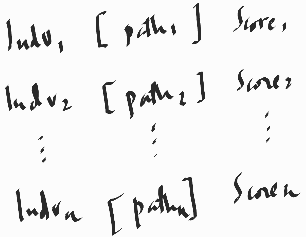 Indv₁ [ path₁ ] Score₁
Indv₂ [ path₂ ] Score₂
⋮ ⋮ ⋮
Indvₙ [ pathₙ ] Scoreₙ